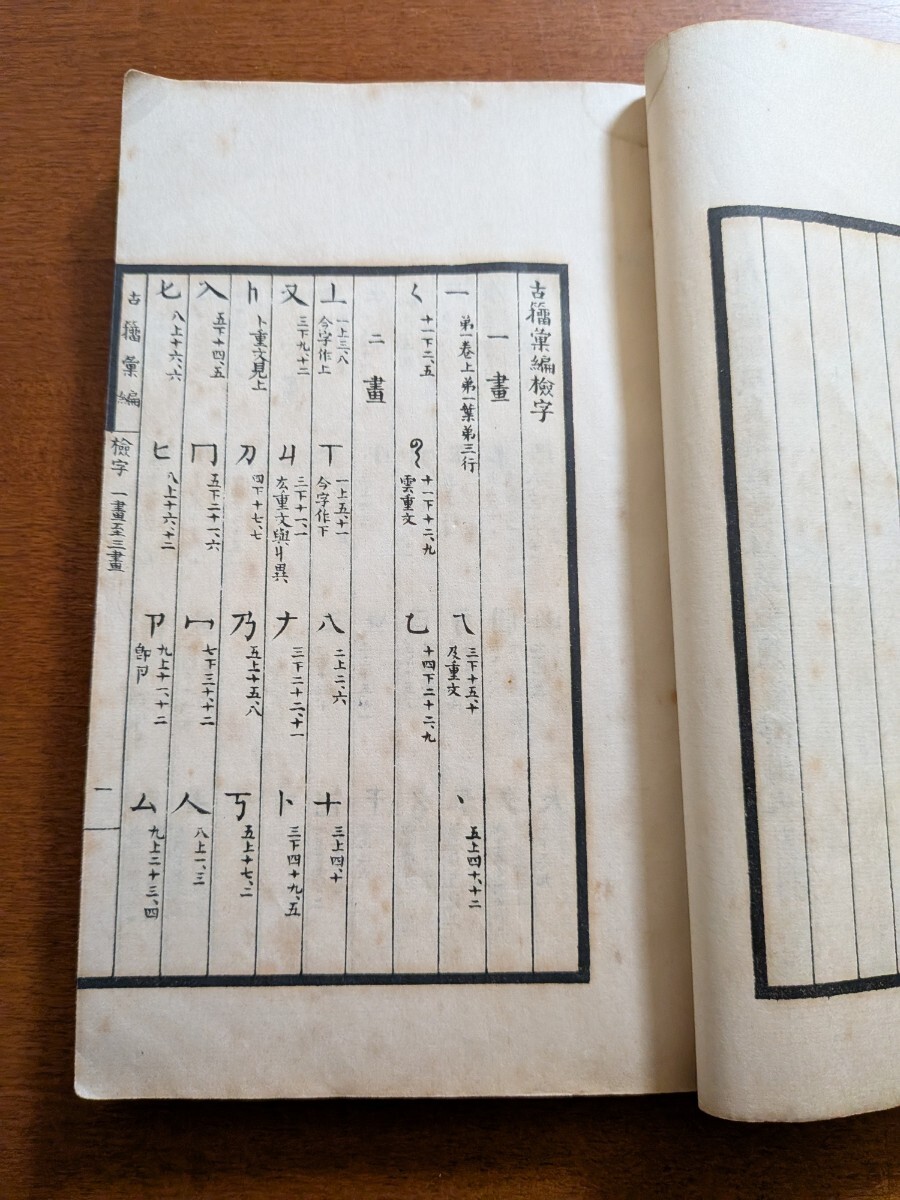 古籀彙編檢字
一畫
一 第一卷上第一葉第三行
乁 三下十五、十 及重文
丶 五上四十、十二
く 十一下二、五
十一下十二、九 雲重文
乙 十四下二十二、九
二畫
丄 一上三、八 今字作上
丅 一上五、十一 今字作下
八 二上二、六
十 三上四、十
又 三下九、十二
丩 三下十一、一 厷重文與丩異
𠂇 三下二十二、十一
卜 三下四十九、五
卜重文見上
刀 四下十七、七
乃 五上十五、八
丂 五上十七、二
入 五下十四、五
冂 五下二十一、六
冖 七下三十、十二
人 八上一、三
匕 八上十六、六
匕 八上十六、十二
卩 九上十一、十二
厶 九上二十三、四
古籀彙編
檢字 一畫至三畫
一